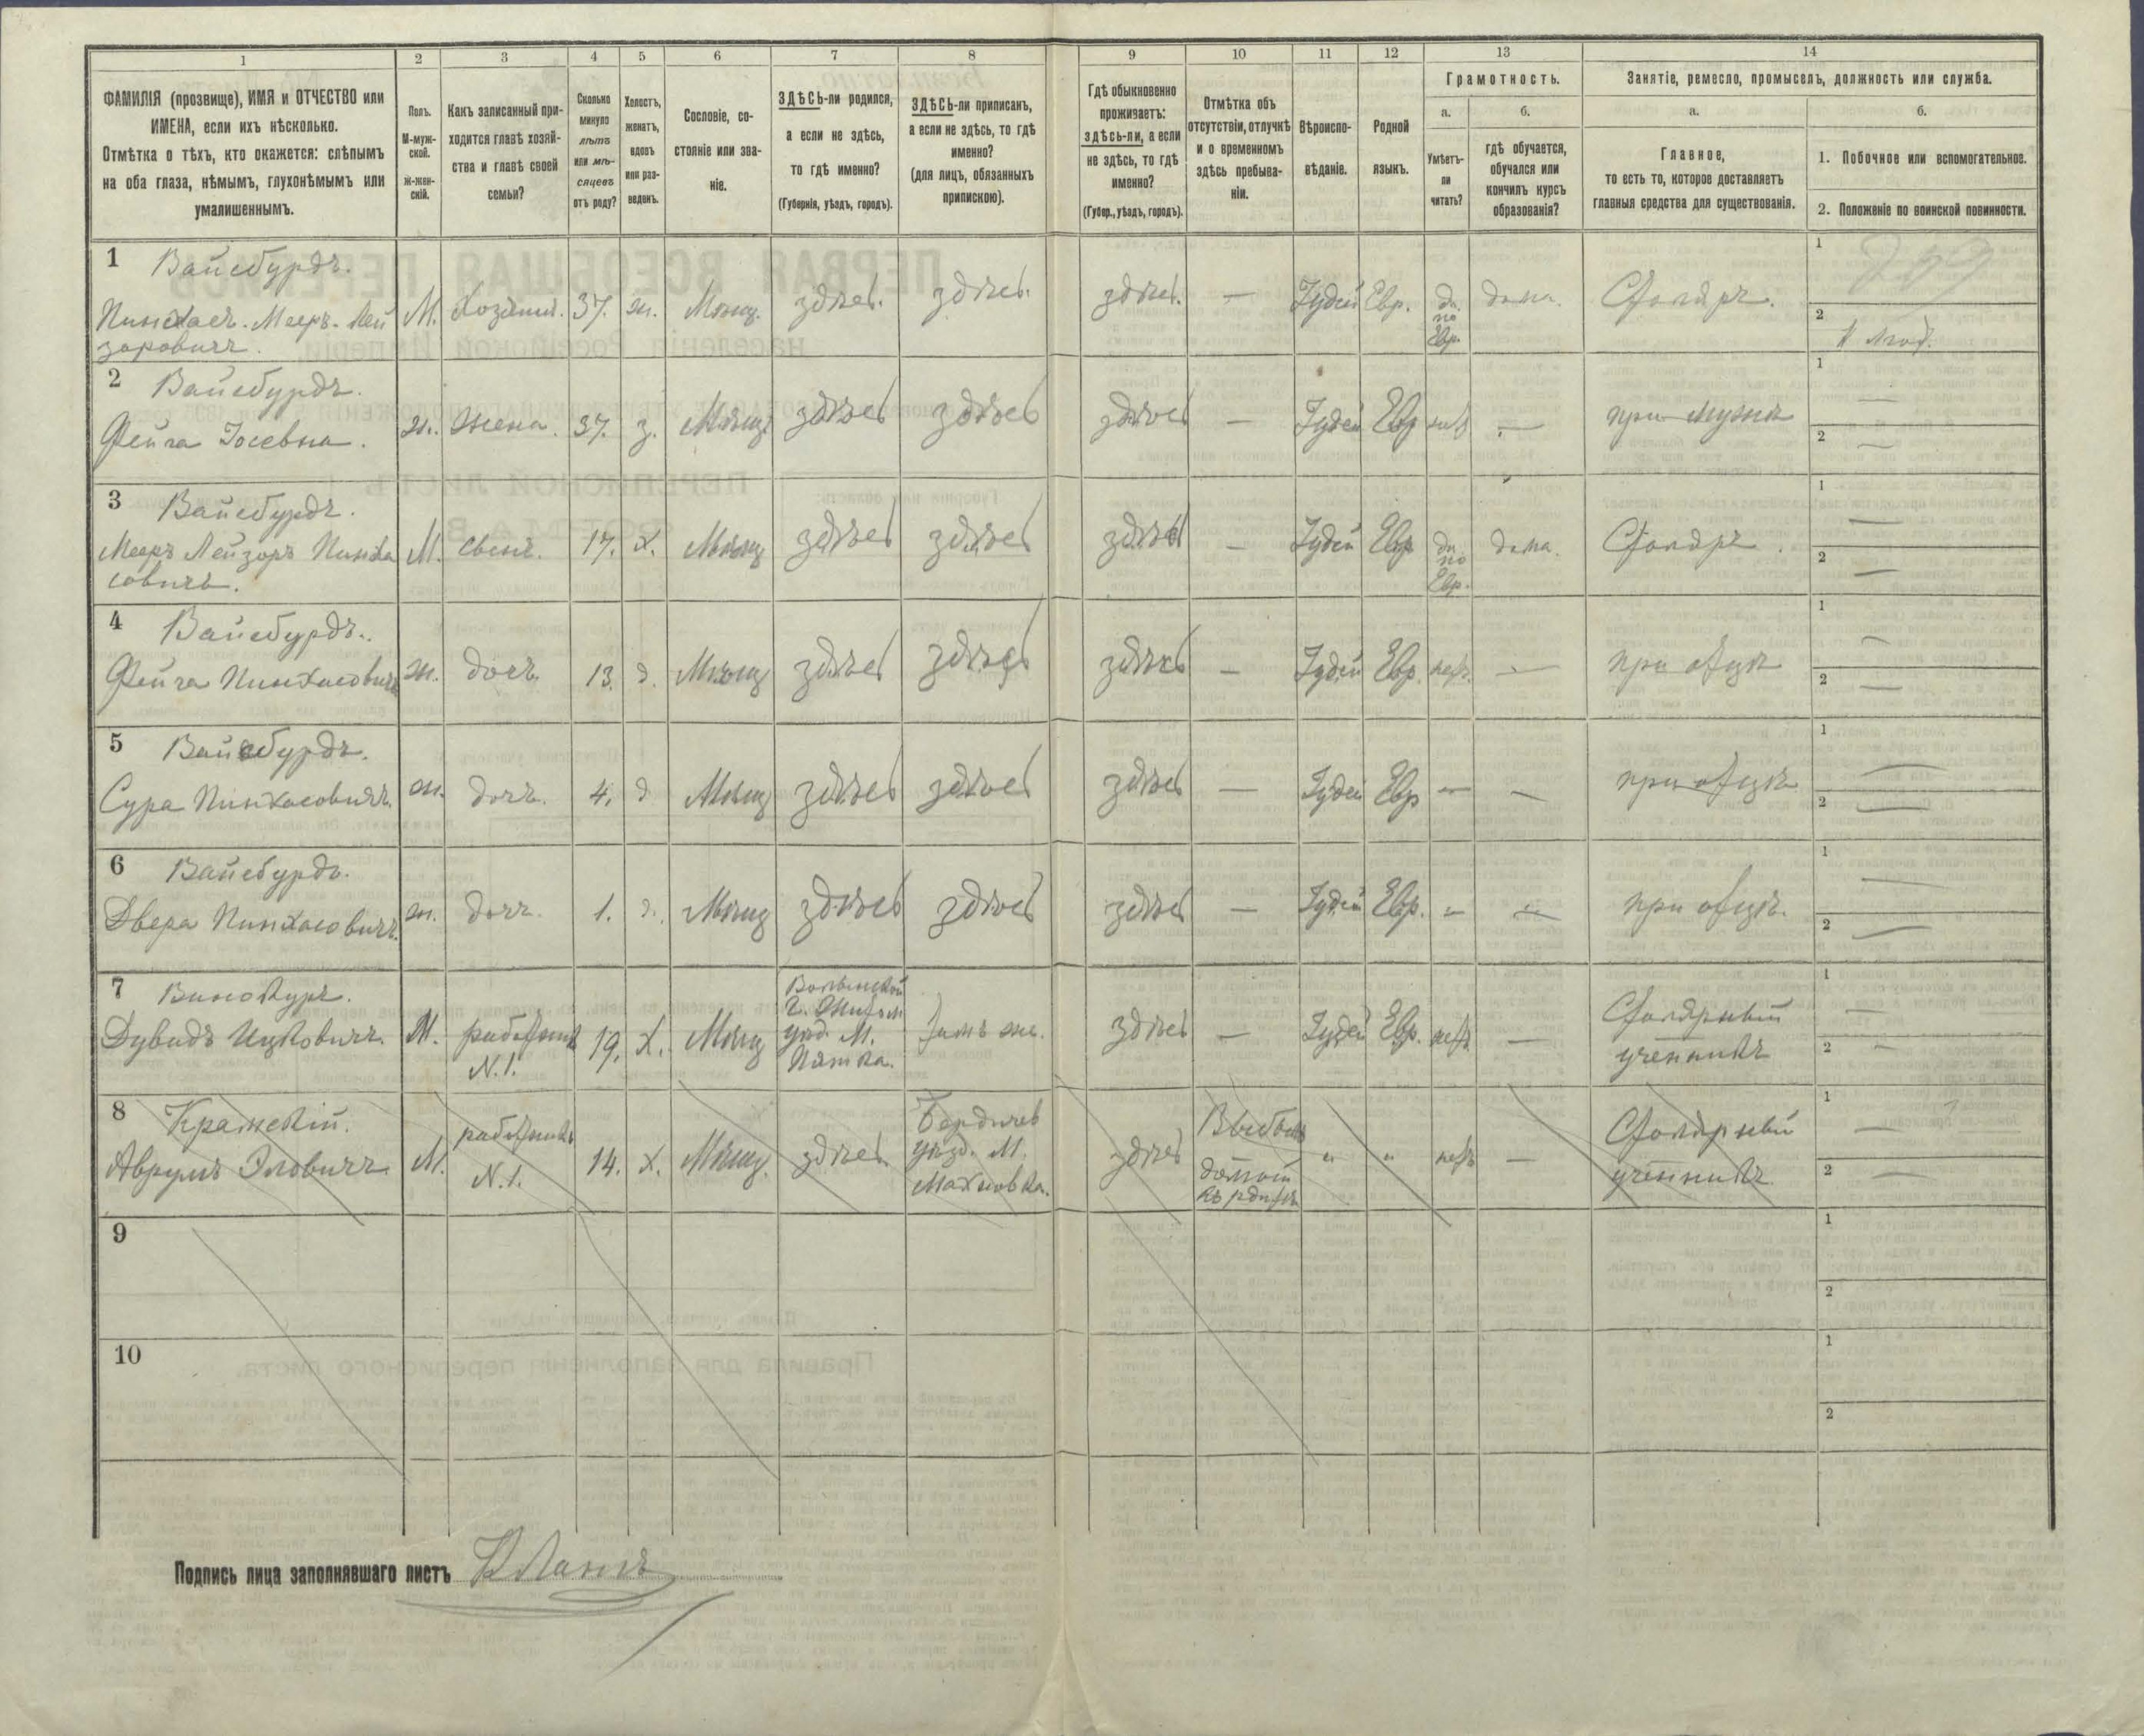 1
2
3
4
5
6
7
8
9
10
11
12
13
14
ФАМИЛІЯ (прозвище), ИМЯ и ОТЧЕСТВО или
ИМЕНА, если ихъ нѣсколько.
Отмѣтка о тѣхъ, кто окажется: слѣпымъ
на оба глаза, нѣмымъ, глухонѣмымъ или
умалишеннымъ.
Полъ.
М-муж-
ской.
Ж-жен-
скій.
Какъ записанный при-
ходится главѣ хозяй-
ства и главѣ своей
семьи?
Сколько
минуло
лѣтъ
или мѣ-
сяцевъ
отъ роду?
Холостъ,
женатъ,
вдовъ
или раз-
веденъ.
Сословіе, со-
стояніе или зва-
ніе.
ЗДѢСЬ-ли родился,
а если не здѣсь,
то гдѣ именно?
(Губернія, уѣздъ, городъ).
ЗДѢСЬ-ли приписанъ,
а если не здѣсь, то гдѣ
именно?
(для лицъ, обязанныхъ
припискою).
Гдѣ обыкновенно
проживаетъ:
здѣсь-ли, а если
не здѣсь, то гдѣ
именно?
(Губер., уѣздъ, городъ).
Отмѣтка объ
отсутствіи, отлучкѣ
и о временномъ
здѣсь пребыва-
ніи.
Вѣроиспо-
вѣданіе.
Родной
языкъ.
Грамотность.
а.
Умѣетъ-
ли
читать?
б.
гдѣ обучается,
обучался или
кончилъ курсъ
образованія?
Занятіе, ремесло, промыселъ, должность или служба.
а.
Главное,
то есть то, которое доставляетъ
главныя средства для существованія.
б.
1. Побочное или вспомогательное.
2. Положеніе по воинской повинности.
1 Вайсбурдъ.
Пинхасъ-Мееръ-Лей
зоровичъ.
М.
Хозяинъ.
37.
ж.
Мѣщ.
здѣсь.
здѣсь.
здѣсь.
—
Іудей
Евр.
да
по
Евр.
дома.
Столяръ.
1
2
2 Вайсбурдъ.
Фейга Іосевна.
ж.
жена.
37.
з.
Мѣщ
здѣсь
здѣсь
здѣсь
—
Іудей
Евр
нѣт
—
при мужѣ
1 —
2 —
3 Вайсбурдъ.
Мееръ Лейзоръ Пинха
совичъ.
М.
сынъ.
17.
х.
Мѣщ
здѣсь
здѣсь
здѣсь
—
Іудей
Евр
да
по
Евр.
дома.
Столяръ.
1 —
2 —
4 Вайсбурдъ.
Фейга Пинхасовичъ
ж.
дочь.
13.
д.
Мѣщ
здѣсь
здѣсь
здѣсь
—
Іудей
Евр.
нетъ.
—
при отцѣ
1 —
2 —
5 Вайсбурдъ.
Сура Пинхасовичъ.
ж.
дочь.
4.
д
Мѣщ
здѣсь
здѣсь
здѣсь
—
Іудей
Евр
—
—
при отцѣ
1 —
2 —
6 Вайсбурдъ.
Двера Пинхасовичъ.
ж.
дочь.
1.
д.
Мѣщ
здѣсь
здѣсь
здѣсь
—
Іудей
Евр.
—
—
при отцѣ.
1 —
2 —
7 Винокуръ.
Дувидъ Ицковичъ.
М.
работник
N.1.
19.
х.
Мѣщ
Волынской
г. Житом
уѣзд. М.
Пятка.
тамъ же.
здѣсь
—
Іудей
Евр.
нетъ
—
Столярный
ученикъ
1 —
2 —
8 Кражскій.
Аврумъ Эловичъ.
М.
работникъ
N.1.
14.
х.
Мѣщ.
здѣсь
Бердичев
уѣзд. М.
Махновка.
здѣсь
Выбылъ
домой
"
"
нетъ
—
Столярный
ученикъ.
1 —
2 —
9
1
2
10
1
2
Подпись лица заполнявшаго листъ